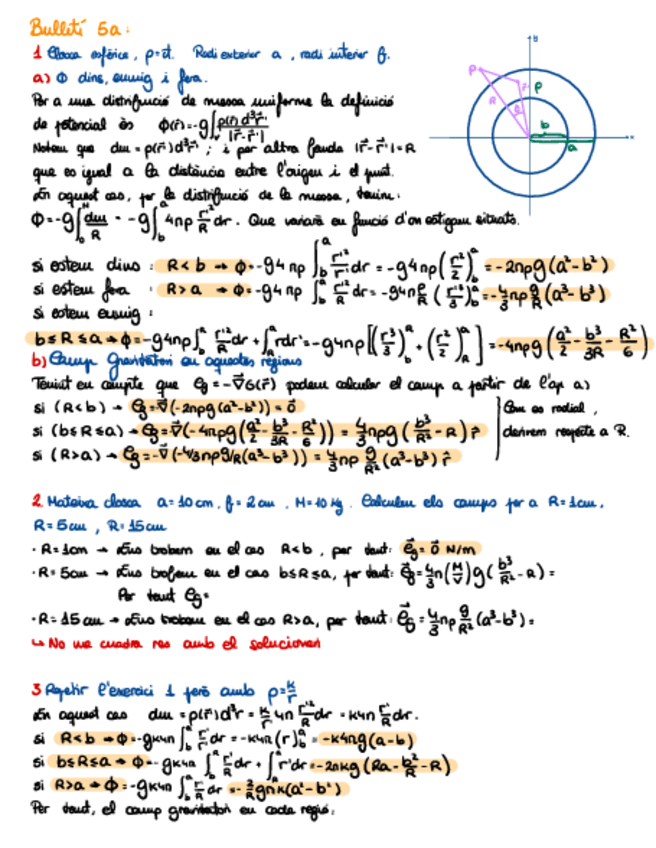 Bulletí 5a:
1 Closca esfèrica, ρ=ct. Radi exterior a, radi interior b.
a) Φ dins, enmig i fora.
Per a una distribució de massa uniforme la definició
de potencial és Φ(r⃗)=-g∫ρ(r⃗)d³r⃗'/|r⃗-r⃗'|
Notem que dm=ρ(r⃗')d³r⃗'; i per altra banda |r⃗-r⃗'|=R
que es igual a la distància entre l'origen i el punt.
En aquest cas, per la distribució de la massa, tenim:
Φ=-g∫₀ᴹ dm/R = -g∫_b^a 4πρ r'²/R dr. Que variarà en funció d'on estigam situats.
si estem dins: R<b → Φ=-g4πρ ∫_b^a r'²/r' dr = -g4πρ(r²/2)_b^a = -2πρg(a²-b²)
si estem fora: R>a → Φ=-g4πρ ∫_b^a r'²/R dr = -g4π ρ/R (r'³/3)_b^a = -4/3 πρ g/R (a³-b³)
si estem enmig:
b≤R≤a → Φ=-g4πρ∫_b^R r'²/R dr + ∫_R^a r dr' = -g4πρ[(r³/3)_b^R + (r²/2)_R^a] = -4πρg(a²/2 - b³/3R - R²/6)
b) Camp gravitatori en aquestes regions
Tenint en compte que e⃗g=-∇⃗G(r⃗) podem calcular el camp a partir de l'ap a)
si (R<b) → e⃗g=-∇⃗(-2πρg(a²-b²)) = 0⃗
si (b≤R≤a) → e⃗g=-∇⃗(-4πρg(a²/2 - b³/3R - R²/6)) = 4/3 πρg (b³/R² - R) r̂
si (R>a) → e⃗g=-∇⃗(-4/3πρg/R(a³-b³)) = 4/3 πρ g/R² (a³-b³) r̂
Com es radial,
derivem respecte a R.
P
R
r
b
a
x
y
2. Mateixa closca a=10cm, b=2cm, M=10 Kg. Calculeu els camps per a R=1cm,
R=5cm, R=15cm
· R=1cm → Ens trobem en el cas R<b, per tant: e⃗g=0⃗ N/m
· R=5cm → Ens trobem en el cas b≤R≤a, per tant: e⃗g=4/3 π(M/V)g(b³/R² - R)=
Per tant e⃗g=
· R=15cm → Ens trobem en el cas R>a, per tant: e⃗g=4/3 πρ g/R² (a³-b³)=
↳ No me cuadra res amb el solucionari
3 Repetir l'exercici 1 però amb ρ=k/r
En aquest cas dm=ρ(r⃗')d³r = k/r' 4π r'²/R dr = k4π r'/R dr.
si R<b → Φ=-gk4π∫_b^a r'/r' dr = -k4π(r)_b^a = -k4πg(a-b)
si b≤R≤a → Φ=-gk4π ∫_b^R r'/R dr + ∫_R^a r'dr = -2πkg(2a-b²/R-R)
si R>a → Φ=-gk4π ∫_b^a r'/R dr = -2/R gπk(a²-b²)
Per tant, el camp gravitatori en cada regió: